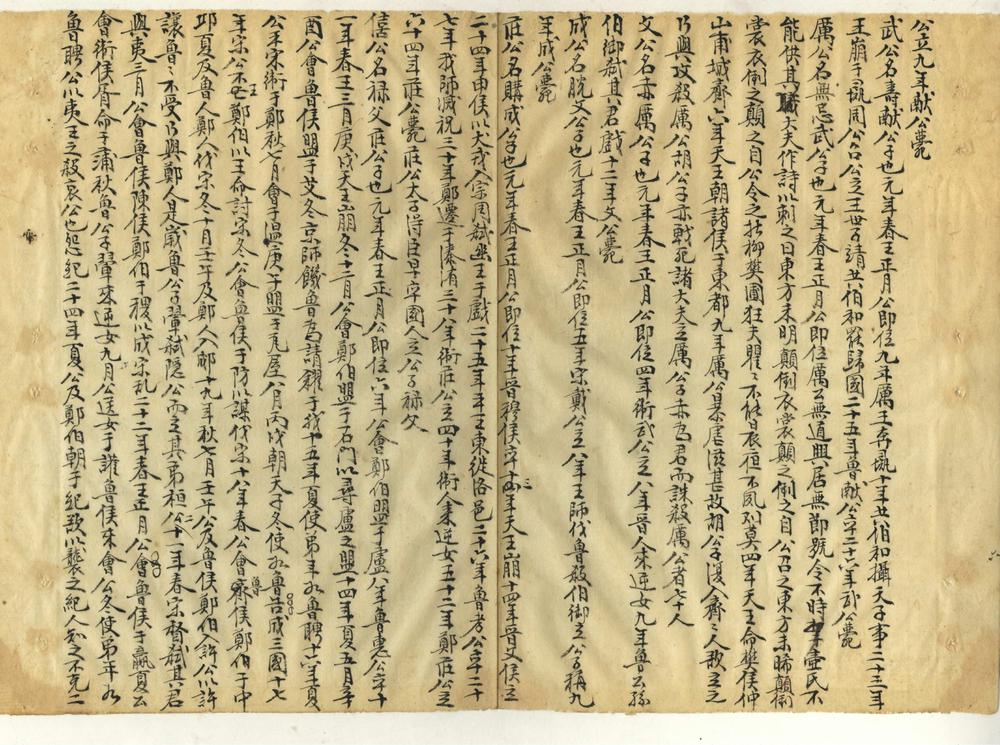 公立九年献公薨
武公名壽献公子也元年春王正月公即位九年厲王奔彘十年共伯和攝天子事二十三年
王崩于彘周公召公立王世子靖共伯和羅歸國二十五年魯献公卒二十六年武公薨
厲公名無忌武公子也元年春王正月公即位厲公無道興居無節號令不時挈壷氏不
能供其職大夫作詩以刺之曰東方未明顛倒衣裳顛之倒之自公召之東方未晞顛倒
裳衣倒之顛之自公令之折柳樊圃狂夫瞿々不能辰夜不夙則莫四年天王命樊侯仲
山甫城齊六年天王朝諸侯于東都九年厲公暴虐滋甚故胡公子復入齊々人欲立之
乃與攻殺厲公胡公子亦戰死諸大夫立厲公子赤為君而誅殺厲公者七十人
文公名赤厲公子也元年春王正月公即位四年衛武公立八年晋人來逆女九年魯公孫
伯御弑其君戲十二年文公薨
成公名脫文公子也元年春王正月公即位五年宋戴公立八年王師伐魯殺伯御立公子稱九
年成公薨
莊公名購成公子也元年春王正月公即位十年晋穆侯卒十三年天王崩十四年晋文侯立
二十四年申侯以犬戎入宗周弑幽王于戲二十五年平王東從洛邑二十六年魯孝公卒二十
七年我師滅祝三十年鄭遷于溱洧三十八年衛莊公立四十年衛人來逆女五十二年鄭莊公立
六十四年莊公薨莊公太子得臣早卒國人立公子禄父
僖公名禄父莊公子也元年春王正月公即位六年公會鄭伯盟于盧八年魯惠公卒十
一年春王三月庚戌天王崩冬十二月公會鄭伯盟于石門以尋盧之盟十四年夏五月辛
酉公會魯侯盟于艾冬京師饑魯為請糴于我十五年夏使弟年如魯聘十六年夏
公平宋衛于鄭秋七月會于溫庚午盟于瓦屋八月丙戌朝天子冬使如魯告成三國十七
年宋公不王鄭伯以王命討宋冬公會魯侯于防以謀伐宋十八年春公會魯侯鄭伯于中
邱夏及魯人鄭人伐宋冬十月壬午及鄭人入郕十九年秋七月壬午公及魯侯鄭伯入許公以許
讓魯々不受乃與鄭人是歲魯公子翬弑隱公而立其弟桓公二十一年春宋督弑其君
與夷三月公會魯侯陳侯鄭伯于稷以成宋乱二十二年春王正月公會魯侯于嬴夏公
會衛侯胥命于蒲秋魯公子翬來逆女九月公送女于讙魯侯來會公冬使弟年如
魯聘公以夷王之殺哀公也怨紀二十四年夏公及鄭伯朝于紀欲以襲之紀人知之不克二